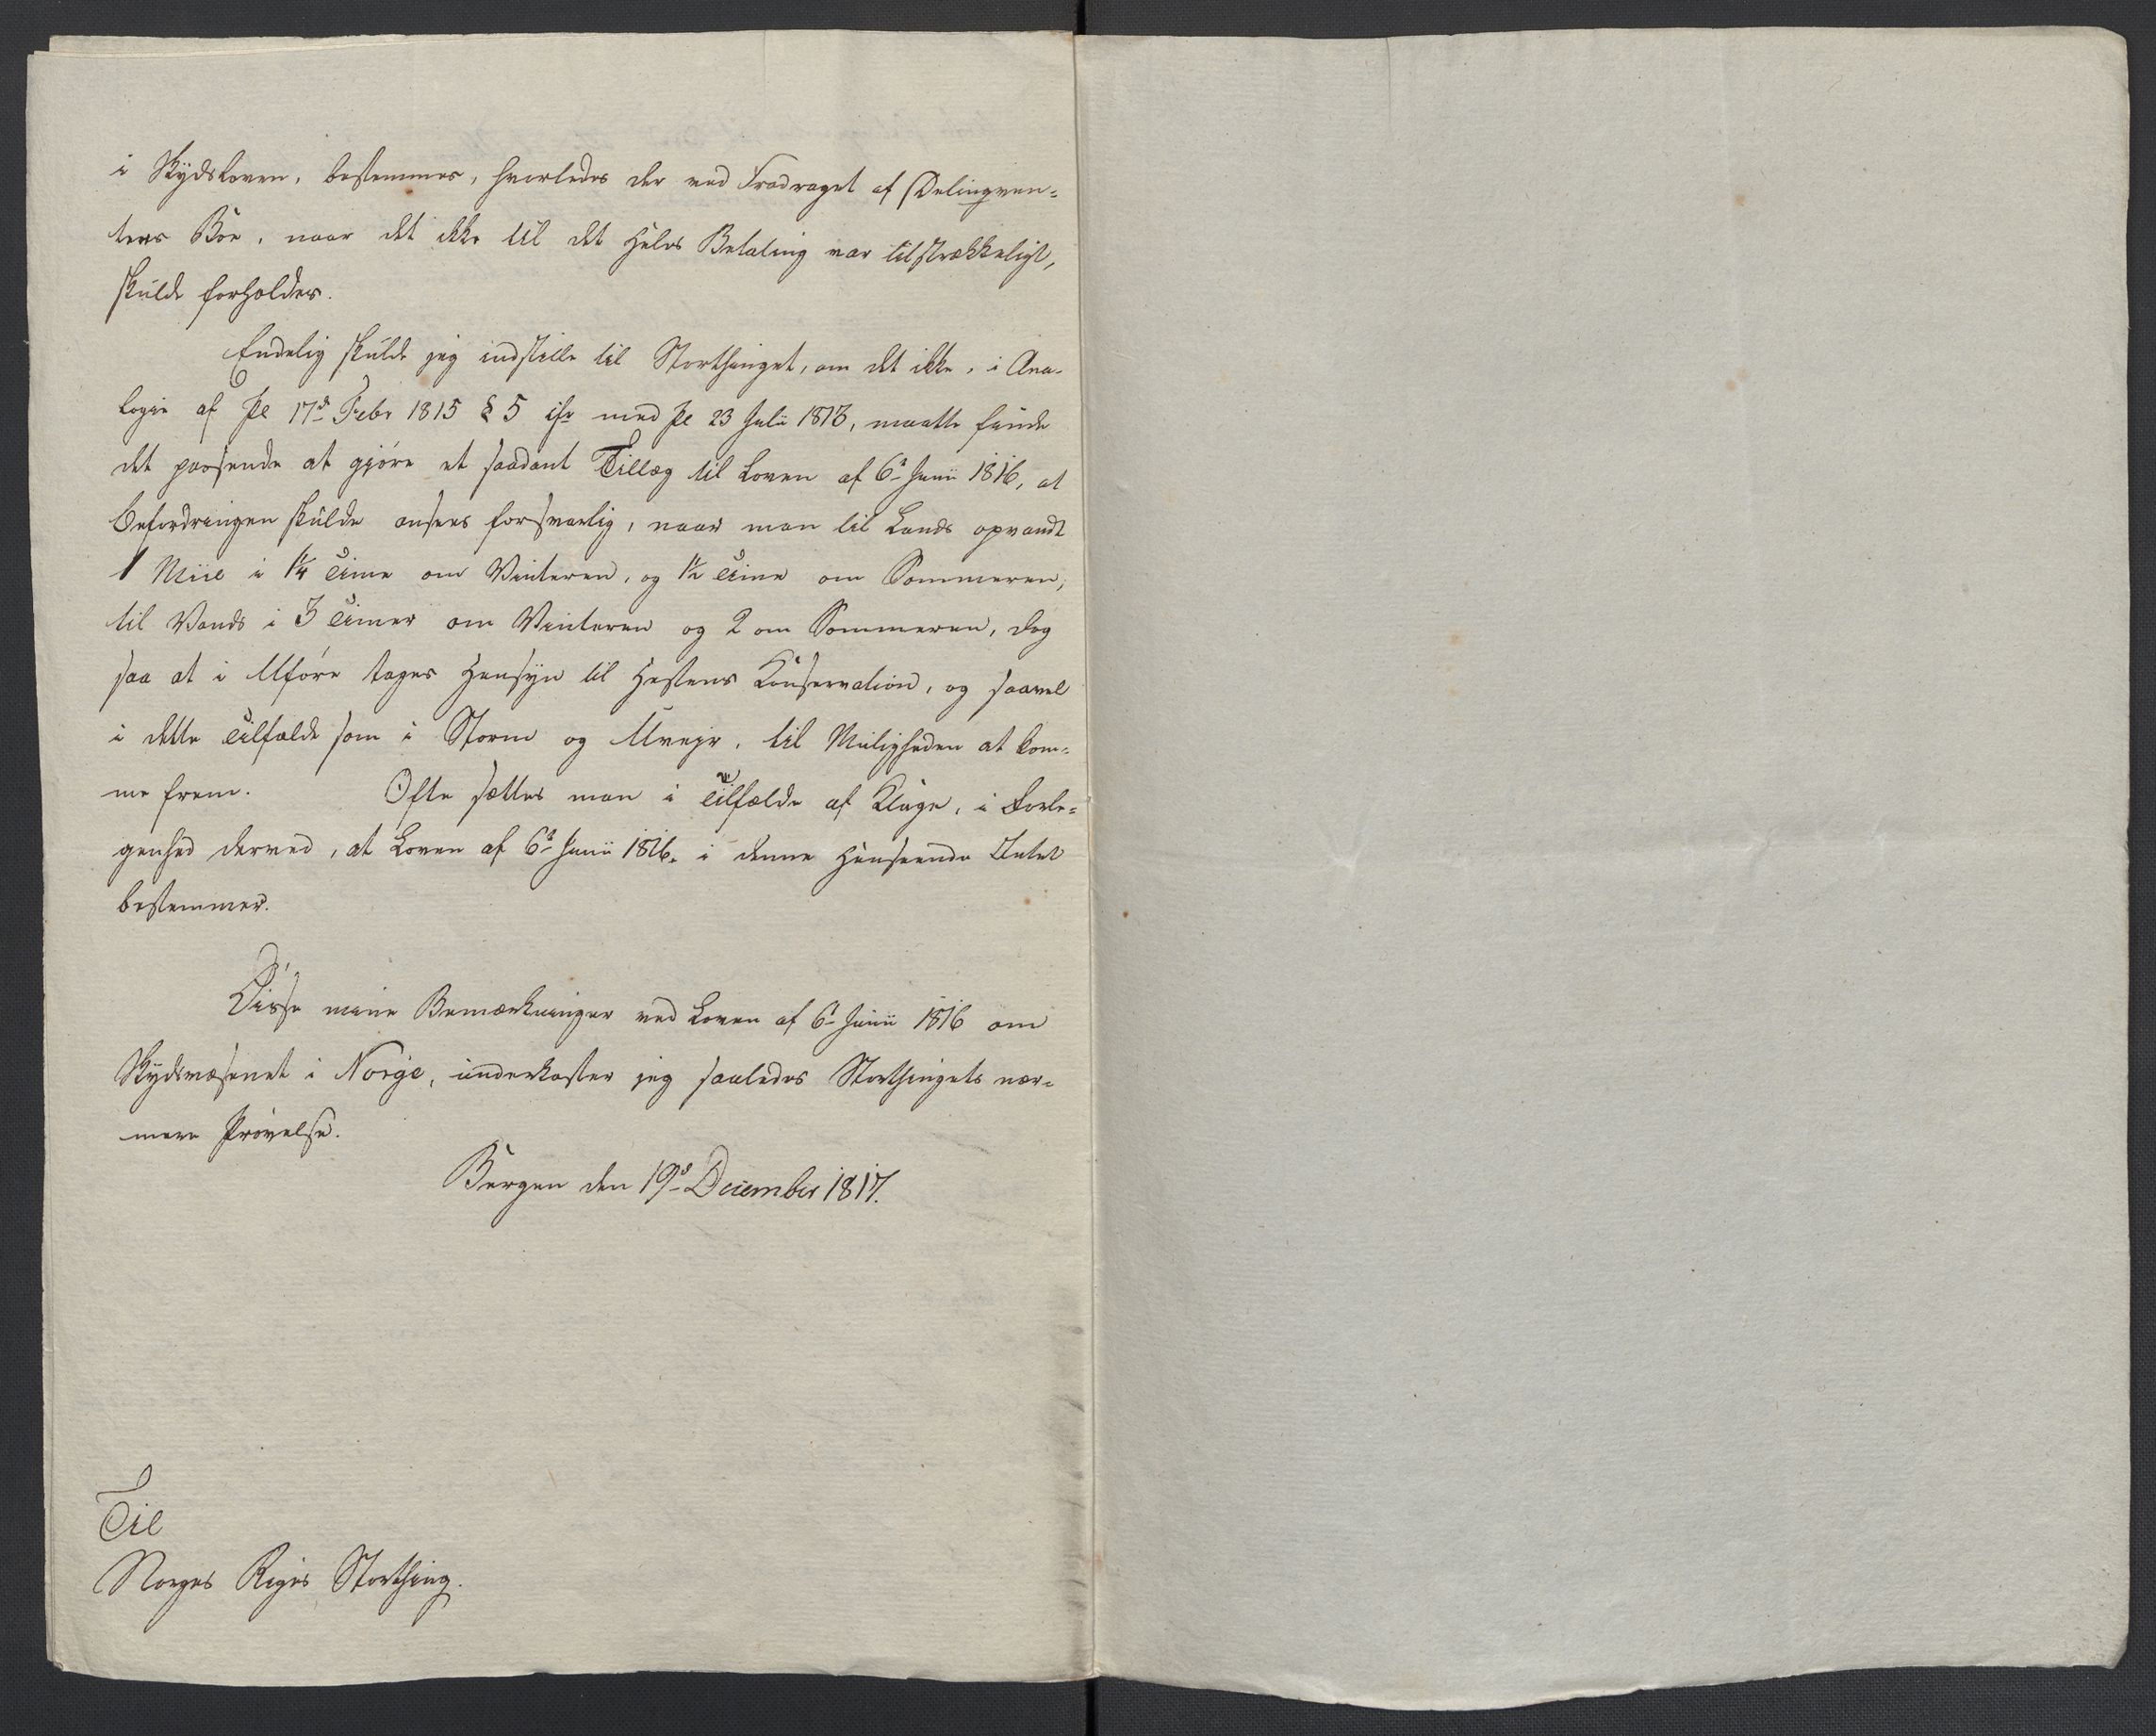 i Skydsloven, bestemmes, hvorledes der ved Fradraget af Delinqven-
tens Boe, naar det ikke til det Heles Betaling var tilstrækkeligt,
skulde forholdes.
Endelig skulde jeg indstille til Storthinget, om det ikke, i Ana-
logie af Pl 17d Febr 1815 § 5 cfr med Pl 23 Juli 1813, maatte finde
det passende at gjöre et saadant Tillæg til Loven af 6t Junii 1816, at
Befordringen skulde ansees forsvarlig, naar man til Lands opvandt
1 Miil i 1¼ Time om Vinteren, og 1½ Time om Sommeren,
til Vands i 3 Timer om Vinteren og 2 om Sommeren, dog
saa at i Uföre tages Hensyn til Hestens Conservation, og saavel
i dette Tilfælde som i Storm og Uvejr, til Muligheden at kom-
me frem. Ofte sættes man i Tilfælde af Klage, i Forle-
genhed derved, at Loven af 6t Junii 1816 i denne Henseende Intet
bestemmer.
Disse mine Bemærkninger ved Loven af 6t Junii 1816 om
Skydsvæsenet i Norge, underkaster jeg saaledes Storthingets nær-
mere Prövelse.
Bergen den 19d December 1817.
Til
Norges Riges Storthing.